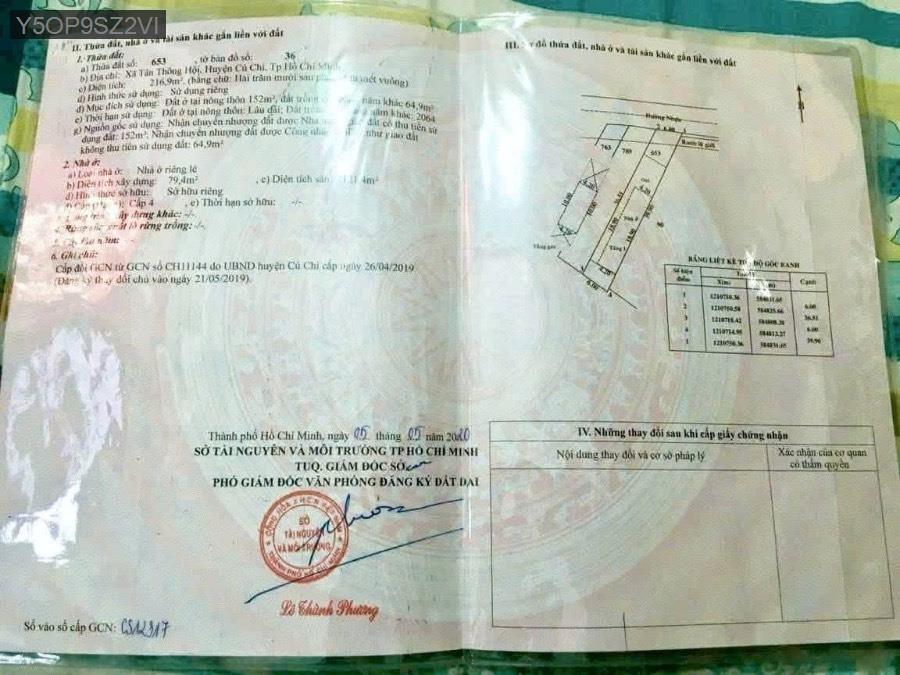 Y5OP9SZ2VI
II. Thửa đất, nhà ở và tài sản khác gắn liền với đất
1. Thửa đất:
a) Thửa đất số: 653 , tờ bản đồ số: 36
b) Địa chỉ: Xã Tân Thông Hội, Huyện Củ Chi, Tp Hồ Chí Minh
c) Diện tích: 216,9m², (bằng chữ: Hai trăm mười sáu mét vuông)
d) Hình thức sử dụng: Sử dụng riêng
đ) Mục đích sử dụng: Đất ở tại nông thôn 152m², đất trồng năm khác 64,9m²
e) Thời hạn sử dụng: Đất ở tại nông thôn: Lâu dài; Đất năm khác: 2064
g) Nguồn gốc sử dụng: Nhận chuyển nhượng đất được Nhà đất có thu tiền sử
dụng đất: 152m²; Nhận chuyển nhượng đất được Công nhận như giao đất
không thu tiền sử dụng đất: 64,9m²
2. Nhà ở:
a) Loại nhà ở: Nhà ở riêng lẻ
b) Diện tích xây dựng: 79,4m² , c) Diện tích sàn: 4m²
d) Hình thức sở hữu: Sở hữu riêng
Cấp 4 , e) Thời hạn sở hữu: -/-
xây dựng khác: -/-
4. Rừng sản xuất là rừng trồng: -/-
5. Cây lâu năm: -/-
6. Ghi chú:
Cấp đổi GCN từ GCN số CH11144 do UBND huyện Củ Chi cấp ngày 26/04/2019
(Đăng ký thay đổi chủ vào ngày 21/05/2019).
Thành phố Hồ Chí Minh, ngày 05 tháng 05 năm 2020
SỞ TÀI NGUYÊN VÀ MÔI TRƯỜNG TP HỒ CHÍ MINH
TUQ. GIÁM ĐỐC SỞ
PHÓ GIÁM ĐỐC VĂN PHÒNG ĐĂNG KÝ ĐẤT ĐAI
SỞ
TÀI NGUYÊN
VÀ MÔI TRƯỜNG
THÀNH PHỐ HỒ CHÍ MINH
Lê Thành Phương
Số vào sổ cấp GCN: CS12317
III. Sơ đồ thửa đất, nhà ở và tài sản khác gắn liền với đất
B
Đường Nhựa
2 6.00 1
Ranh lộ giới
763
789
653
4.20
Nhà ở
Tầng 1
18.90
4.20
6.00
Tầng gác
4.20
10.00
BẢNG LIỆT KÊ TỌA ĐỘ GÓC RANH
Số hiệu điểm
Tọa độ
Cạnh
X(m)
1 1210750.36 584831.65
6.00
2 1210750.58 584825.66
36.51
3 1210718.42 584808.38
6.00
4 1210714.95 584813.27
39.96
1 1210750.36 584831.65
IV. Những thay đổi sau khi cấp giấy chứng nhận
Nội dung thay đổi và cơ sở pháp lý
Xác nhận của cơ quan
có thẩm quyền